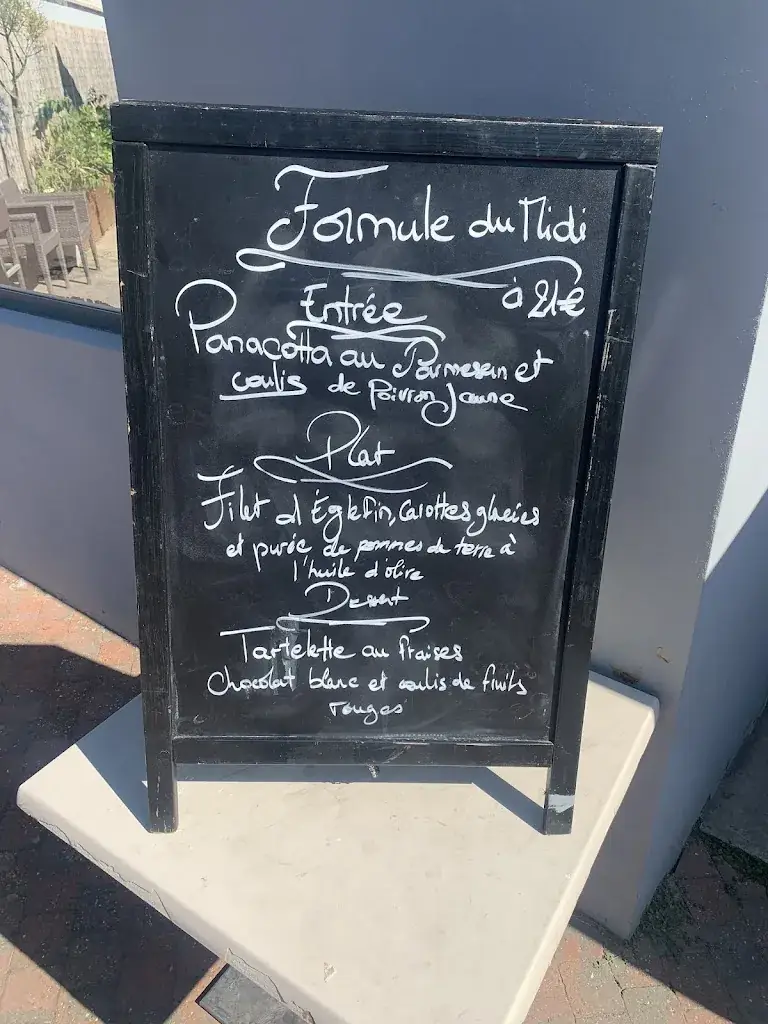 Formule du Midi
à 21€
Entrée
Panacotta au Parmesan et
coulis de Poivron Jaune
Plat
Filet d'Églefin, Carottes glacées
et purée de pommes de terre à
l'huile d'olive
Dessert
Tartelette au fraises
Chocolat blanc et coulis de fruits
rouges